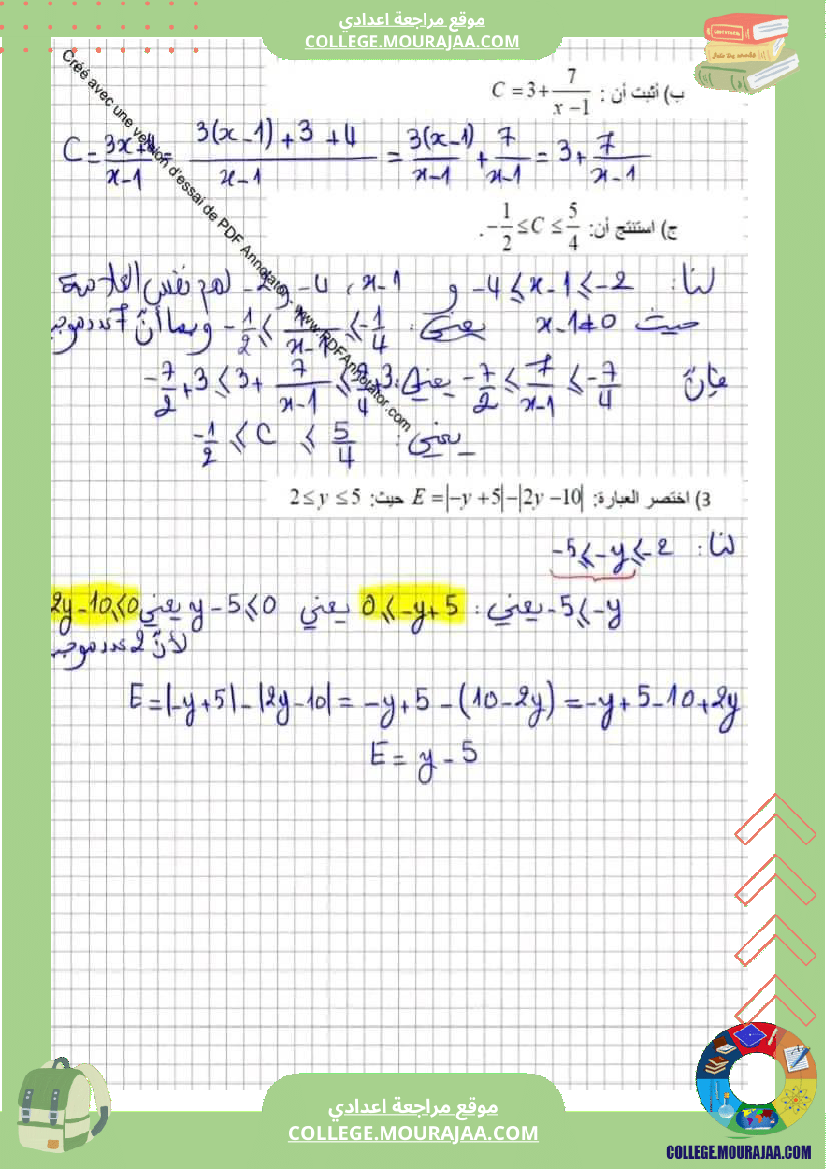 موقع مراجعة اعدادي
COLLEGE.MOURAJAA.COM
Créé avec une version d'essai de PDF Annotator - www.PDFAnnotator.com
ب) أثبت أن : C = 3 + 7/(x − 1)
C = (3x + 4)/(x − 1) = (3(x − 1) + 3 + 4)/(x − 1) = 3(x − 1)/(x − 1) + 7/(x − 1) = 3 + 7/(x − 1)
ج) استنتج أن: −1/2 ≤ C ≤ 5/4 .
لنا: −4 ≤ x − 1 ≤ −2 و x − 1 ، −4 و −2 لهم نفس العلامة
حيث x − 1 ≠ 0 يعني: −1/2 ≤ 1/(x − 1) ≤ −1/4 وبما أنّ 7 عدد موجب
فإنّ −7/2 ≤ 7/(x − 1) ≤ −7/4 يعني: −7/2 + 3 ≤ 3 + 7/(x − 1) ≤ −7/4 + 3
يعني: −1/2 ≤ C ≤ 5/4
3) اختصر العبارة: E = |−y + 5| − |2y − 10| حيث: 2 ≤ y ≤ 5
لنا: −5 ≤ −y ≤ −2
−5 ≤ −y يعني: 0 ≤ −y + 5 يعني y − 5 ≤ 0 يعني 2y − 10 ≤ 0
لأنّ 2 عدد موجب
E = |−y + 5| − |2y − 10| = −y + 5 − (10 − 2y) = −y + 5 − 10 + 2y
E = y − 5
موقع مراجعة اعدادي
COLLEGE.MOURAJAA.COM
COLLEGE.MOURAJAA.COM